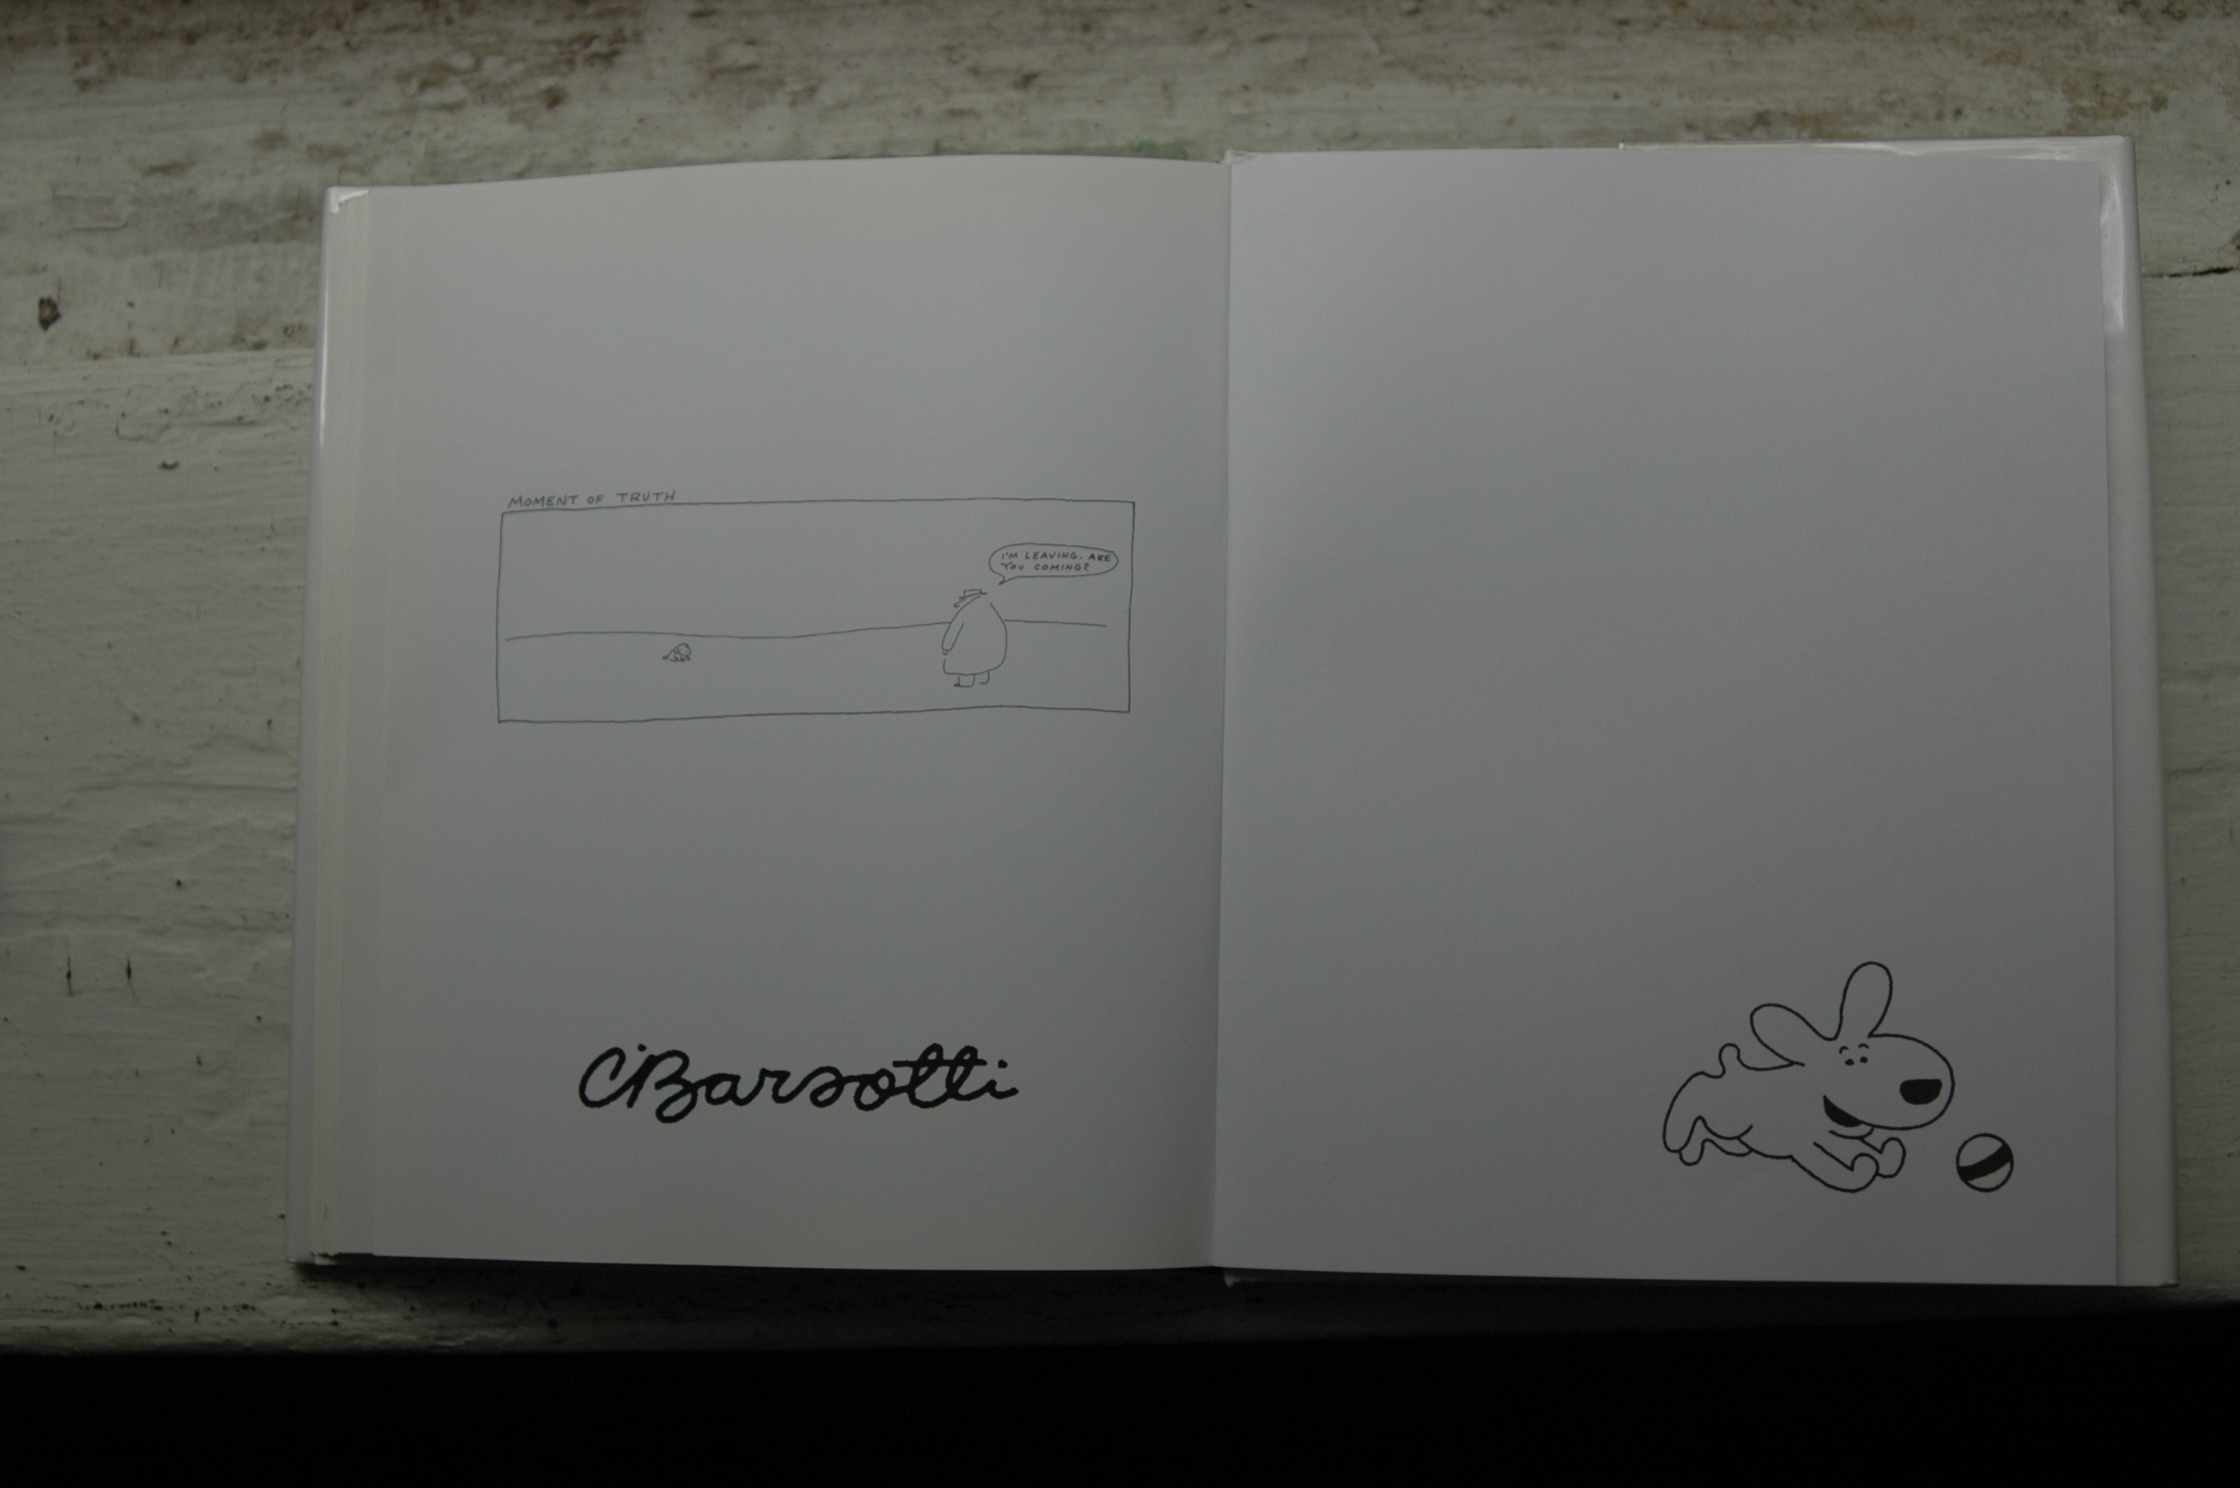 MOMENT OF TRUTH
I'M LEAVING. ARE
YOU COMING?
CBarsotti